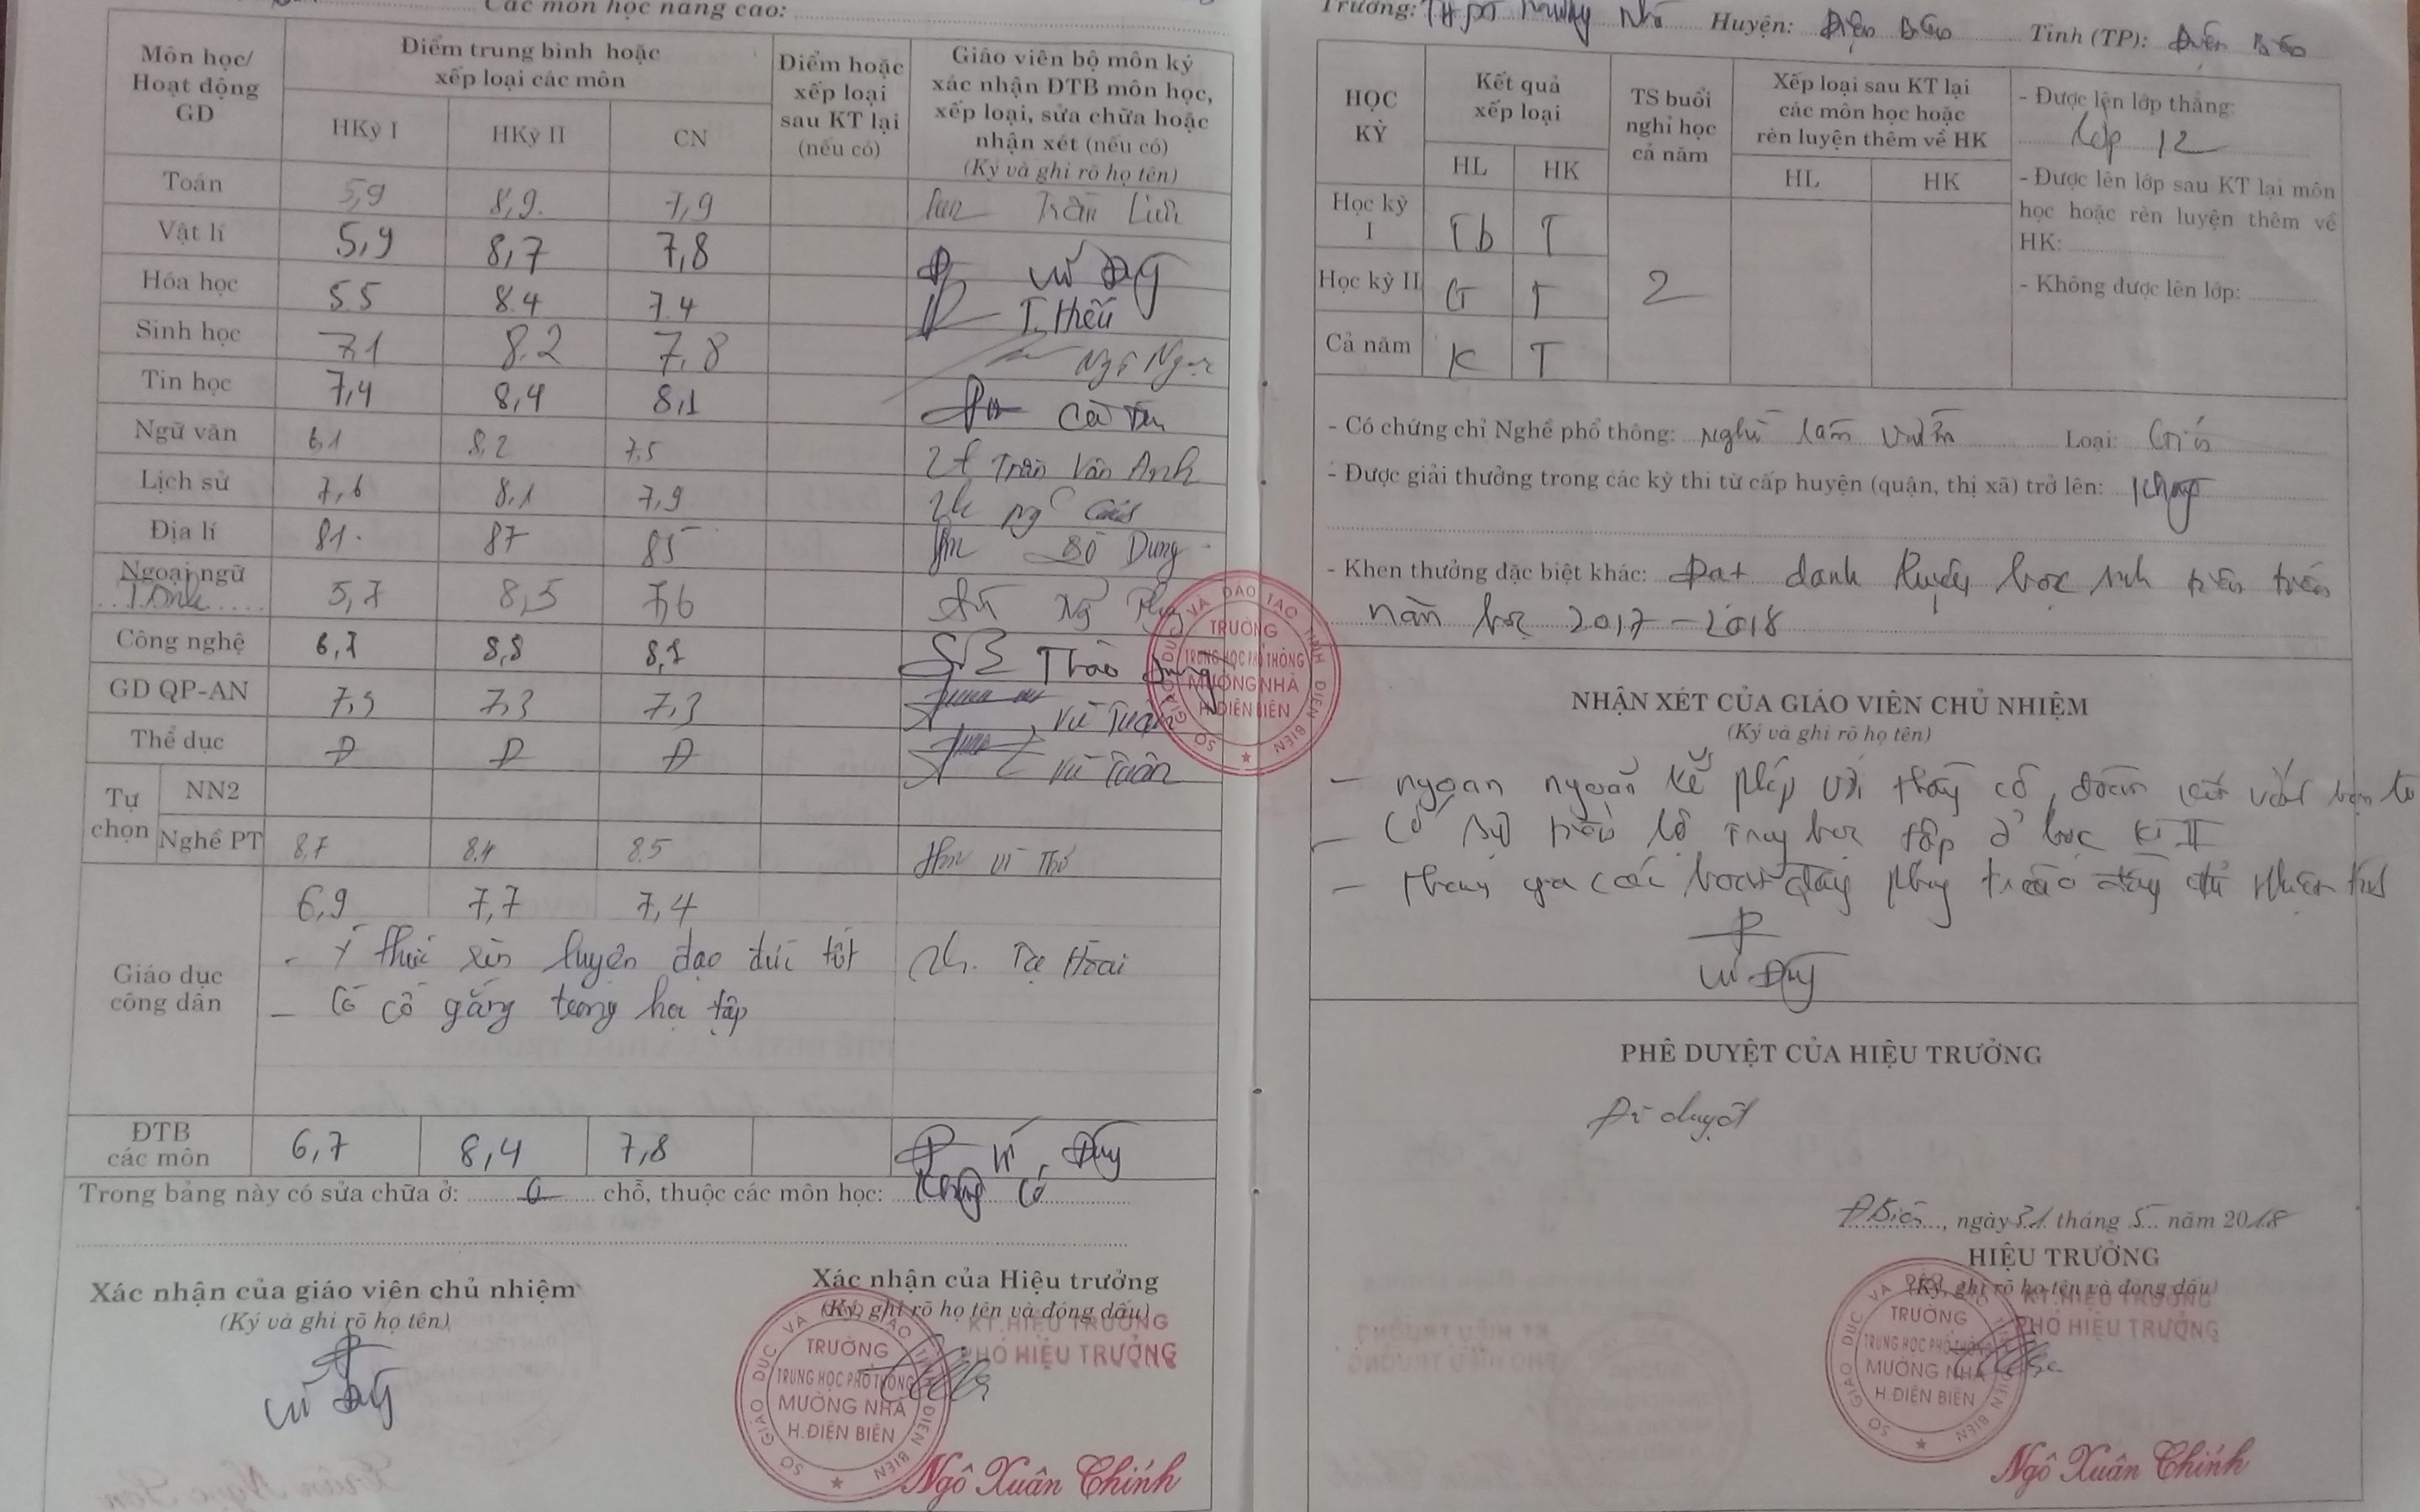 Các môn học nâng cao:
Môn học/ Hoạt động GD
Điểm trung bình hoặc xếp loại các môn
Điểm hoặc xếp loại sau KT lại (nếu có)
Giáo viên bộ môn ký xác nhận ĐTB môn học, xếp loại, sửa chữa hoặc nhận xét (nếu có)
(Ký và ghi rõ họ tên)
HKỳ I HKỳ II CN
Toán 5,9 8,9 7,9 Trần
Vật lí 5,9 8,7 7,8
Hóa học 5.5 8.4 7.4 T. Hiếu
Sinh học 7.1 8.2 7,8
Tin học 7,4 8,4 8,1
Ngữ văn 6,1 8,2 7,5 Trần Vân Anh
Lịch sử 7,6 8,1 7,9
Địa lí 81 87 85 Dung
Ngoại ngữ 5,7 8,5 7,6
Công nghệ 8,8 Thảo Dung
GD QP-AN 7,3 7,3 Vũ Tuấn
Thể dục Đ Đ Đ Vũ Tuấn
Tự chọn
NN2
Nghề PT 8.7 8.4 8.5
Giáo dục công dân
6,9 7,7 7,4
- Ý thức rèn luyện đạo đức tốt Tạ Hoài
- Có cố gắng trong học tập
ĐTB các môn 6,7 8,4 7,8
Trong bảng này có sửa chữa ở: 0 chỗ, thuộc các môn học: Không có
Xác nhận của giáo viên chủ nhiệm
(Ký và ghi rõ họ tên)
Xác nhận của Hiệu trưởng
(Ký, ghi rõ họ tên và đóng dấu)
KT.HIỆU TRƯỞNG
PHÓ HIỆU TRƯỞNG
SỞ GIÁO DỤC VÀ ĐÀO TẠO TỈNH ĐIỆN BIÊN
TRƯỜNG
TRUNG HỌC PHỔ THÔNG
MƯỜNG NHÀ
H.ĐIỆN BIÊN
Ngô Xuân Chính
Trường: THPT Mường Nhà Huyện: Điện Biên Tỉnh (TP): Điện Biên
HỌC KỲ
Kết quả xếp loại
TS buổi nghỉ học cả năm
Xếp loại sau KT lại các môn học hoặc rèn luyện thêm về HK
HL HK HL HK
Học kỳ I Tb T
Học kỳ II G T
2
Cả năm K T
- Được lên lớp thẳng:
Lớp 12
- Được lên lớp sau KT lại môn
học hoặc rèn luyện thêm về
HK:
- Không được lên lớp:
- Có chứng chỉ Nghề phổ thông: Nghề làm vườn Loại: Giỏi
- Được giải thưởng trong các kỳ thi từ cấp huyện (quận, thị xã) trở lên: Không
- Khen thưởng đặc biệt khác: Đạt danh hiệu học sinh tiên tiến
năm học 2017-2018
SỞ GIÁO DỤC VÀ ĐÀO TẠO TỈNH ĐIỆN BIÊN
TRƯỜNG
TRUNG HỌC PHỔ THÔNG
MƯỜNG NHÀ
H.ĐIỆN BIÊN
NHẬN XÉT CỦA GIÁO VIÊN CHỦ NHIỆM
(Ký và ghi rõ họ tên)
- Ngoan ngoãn lễ phép với thầy cô, đoàn kết với bạn
- Có sự tiến bộ trong học tập ở học kì II
- Tham gia các hoạt động phong trào đầy đủ nhiệt tình
PHÊ DUYỆT CỦA HIỆU TRƯỞNG
Đã duyệt
Đ Biên, ngày 31 tháng 5 năm 2018
HIỆU TRƯỞNG
(Ký, ghi rõ họ tên và đóng dấu)
KT.HIỆU TRƯỞNG
PHÓ HIỆU TRƯỞNG
SỞ GIÁO DỤC VÀ ĐÀO TẠO TỈNH ĐIỆN BIÊN
TRƯỜNG
TRUNG HỌC PHỔ THÔNG
MƯỜNG NHÀ
H.ĐIỆN BIÊN
Ngô Xuân Chính